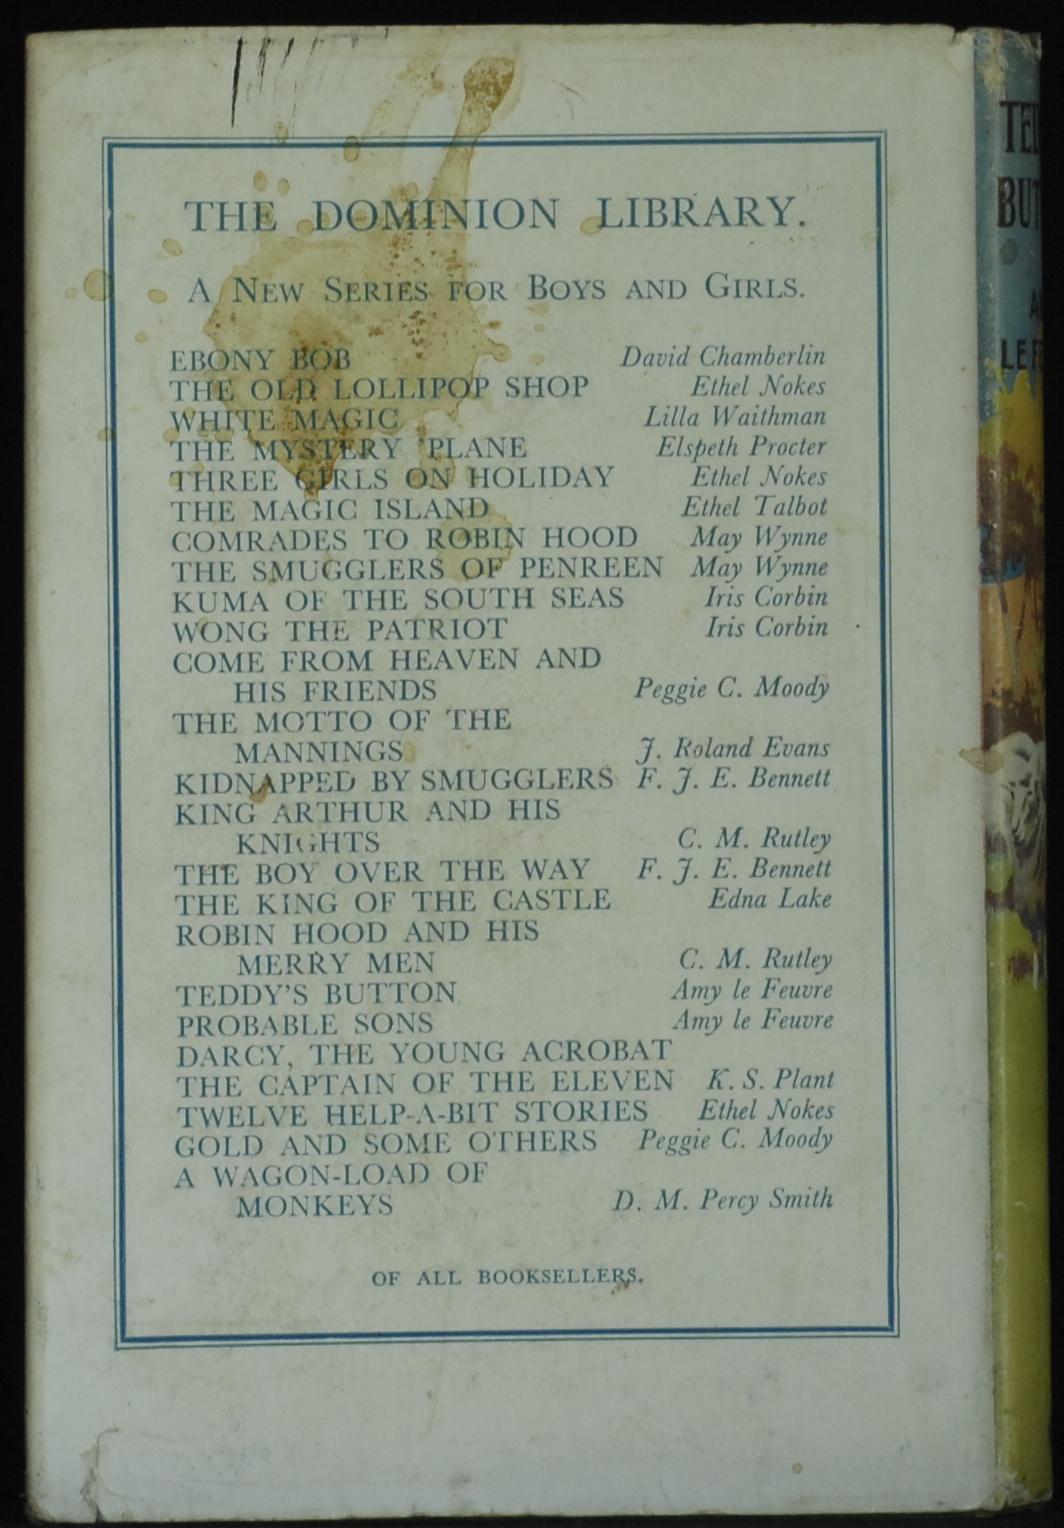 THE DOMINION LIBRARY.
A NEW SERIES FOR BOYS AND GIRLS.
EBONY BOB David Chamberlin
THE OLD LOLLIPOP SHOP Ethel Nokes
WHITE MAGIC Lilla Waithman
THE MYSTERY 'PLANE Elspeth Procter
THREE GIRLS ON HOLIDAY Ethel Nokes
THE MAGIC ISLAND Ethel Talbot
COMRADES TO ROBIN HOOD May Wynne
THE SMUGGLERS OF PENREEN May Wynne
KUMA OF THE SOUTH SEAS Iris Corbin
WONG THE PATRIOT Iris Corbin
COME FROM HEAVEN AND
HIS FRIENDS Peggie C. Moody
THE MOTTO OF THE
MANNINGS J. Roland Evans
KIDNAPPED BY SMUGGLERS F. J. E. Bennett
KING ARTHUR AND HIS
KNIGHTS C. M. Rutley
THE BOY OVER THE WAY F. J. E. Bennett
THE KING OF THE CASTLE Edna Lake
ROBIN HOOD AND HIS
MERRY MEN C. M. Rutley
TEDDY'S BUTTON Amy le Feuvre
PROBABLE SONS Amy le Feuvre
DARCY, THE YOUNG ACROBAT
THE CAPTAIN OF THE ELEVEN K. S. Plant
TWELVE HELP-A-BIT STORIES Ethel Nokes
GOLD AND SOME OTHERS Peggie C. Moody
A WAGON-LOAD OF
MONKEYS D. M. Percy Smith
OF ALL BOOKSELLERS.